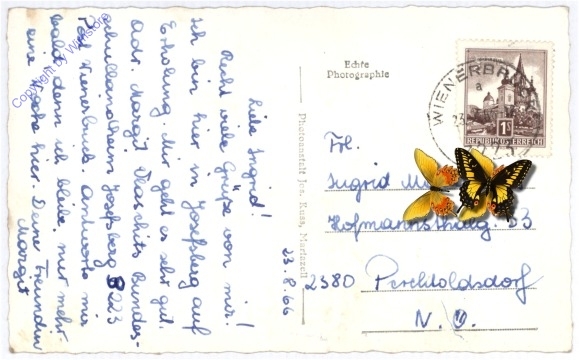 Liebe Ingrid!
Recht viele Grüße von mir!
Ich bin hier in Josefsberg auf
Erholung. Mir geht es sehr gut.
Adr. Margit Bundes-
schullandheim Josefsberg 3223
Post Wienerbruck. Antworte mir
bald denn ich bleibe nur mehr
eine hier. Deine Freundin
Margit
23.8.66
Photoanstalt Jos. Kuss, Mariazell
Echte
Photographie
WIENERBR
a
23.
3223
1S
REPUBLIK ÖSTERREICH
Frl.
Ingrid M
Hofmannsthalg. 33
2380 Perchtoldsdorf
N. Ö.
Copyright by Winstorg